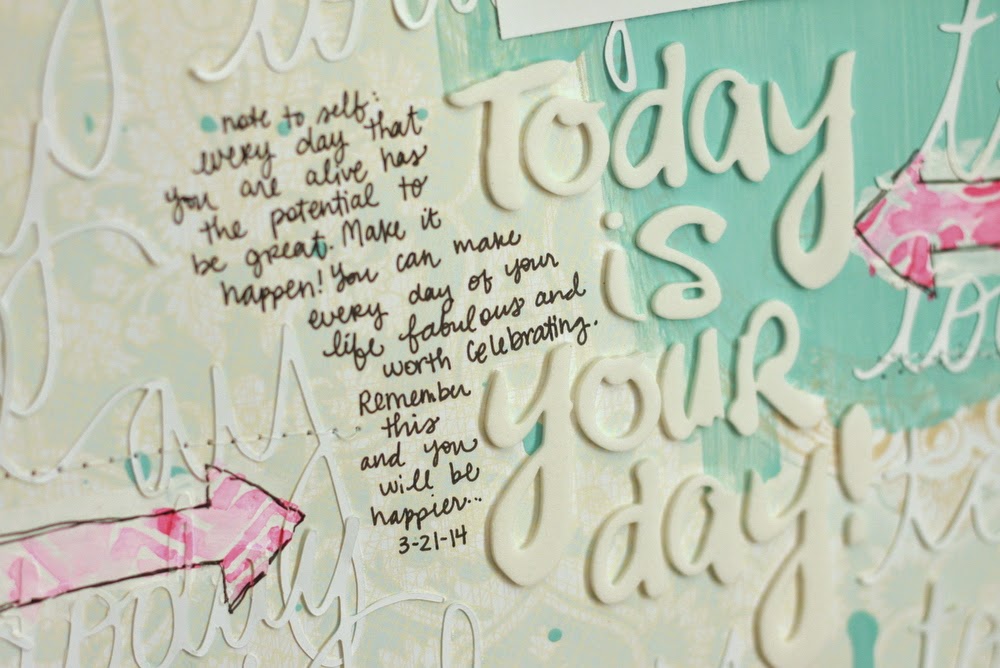 note to self:
every day that
you are alive has
the potential to
be great. Make it
happen! You can make
every day of your
life fabulous and
worth celebrating.
Remember
this
and you
will be
happier...
3-21-14
Today
is
your
day!